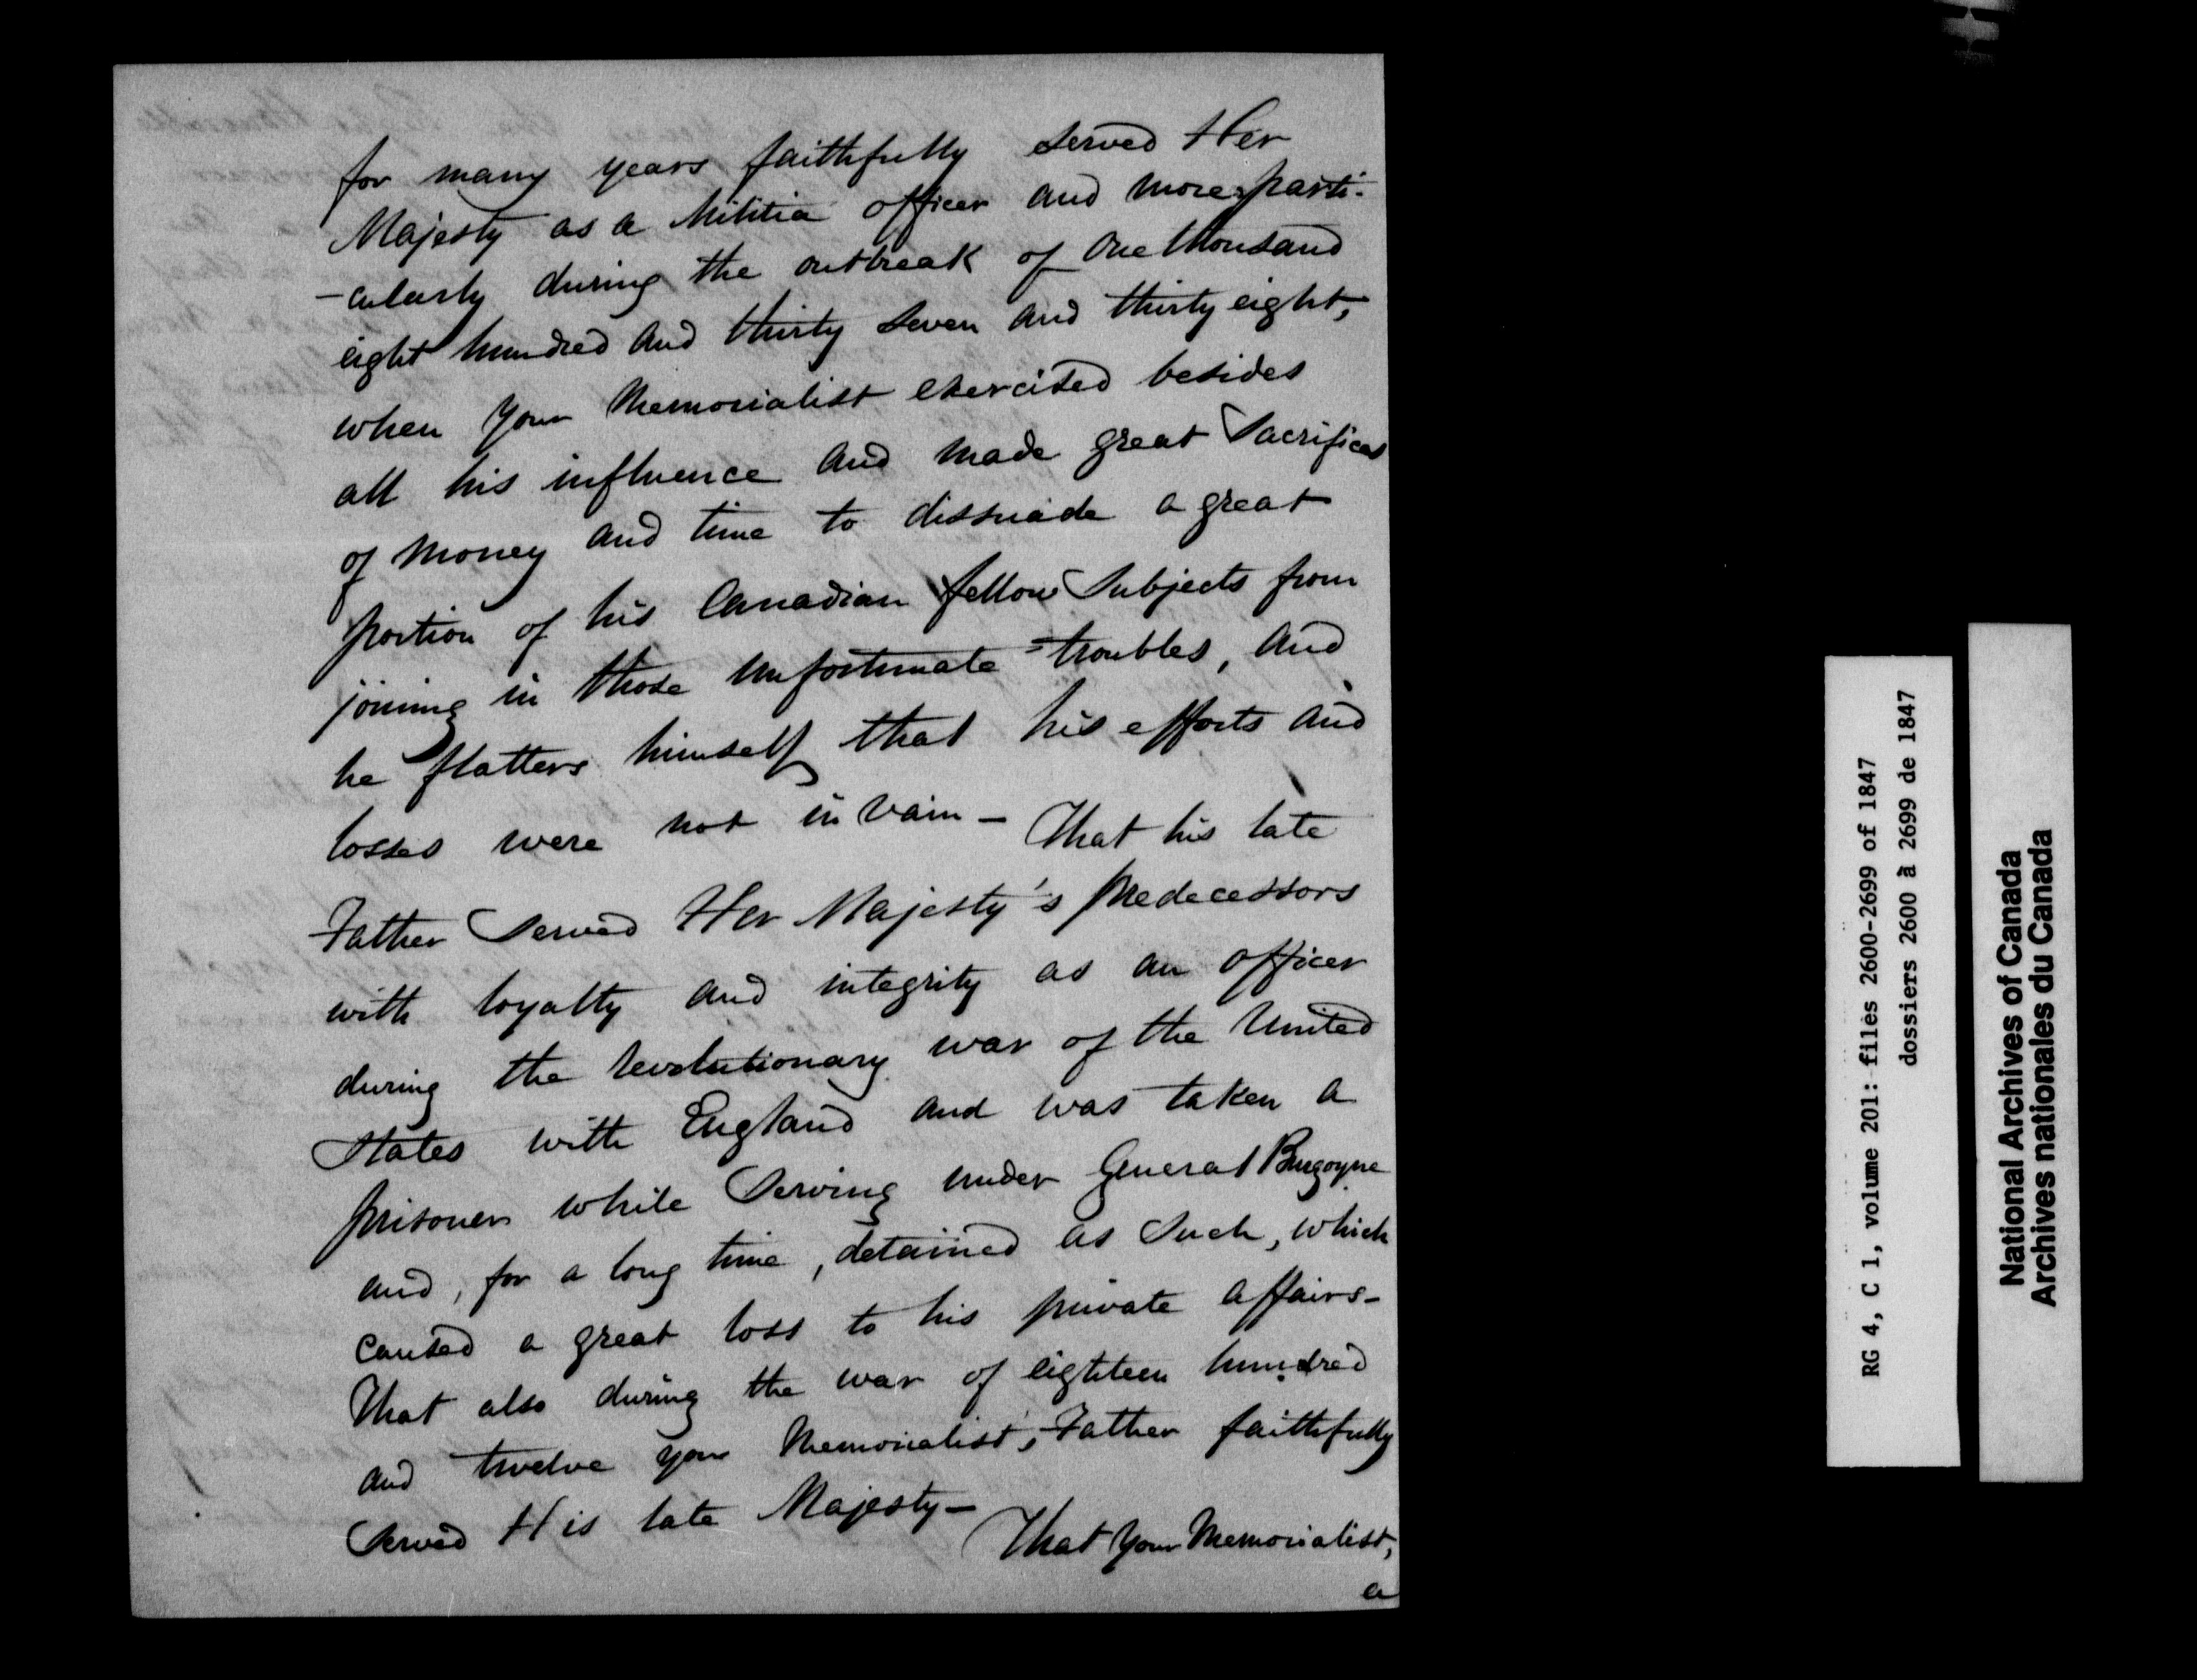 for many years faithfully served Her
Majesty as a Militia officer and more parti-
-cularly during the outbreak of One thousand
eight hundred and thirty seven and thirty eight,
when your Memorialist exercised besides
all his influence and made great Sacrifices
of Money and time to dissuade a great
portion of his Canadian fellow Subjects from
joining in those unfortunate troubles, and
he flatters himself that his efforts and
losses were not in vain - That his late
Father Served Her Majesty's predecessors
with loyalty and integrity as an officer
during the revolutionary war of the United
States with England and was taken a
prisoner while Serving under General Burgoyne
and, for a long time, detained as Such, which
caused a great loss to his private affairs -
That also during the war of eighteen hundred
and twelve your Memorialist's Father faithfully
Served His late Majesty -
That your Memorialist,
a
RG 4, C 1, volume 201: files 2600-2699 of 1847
dossiers 2600 à 2699 de 1847
National Archives of Canada
Archives nationales du Canada